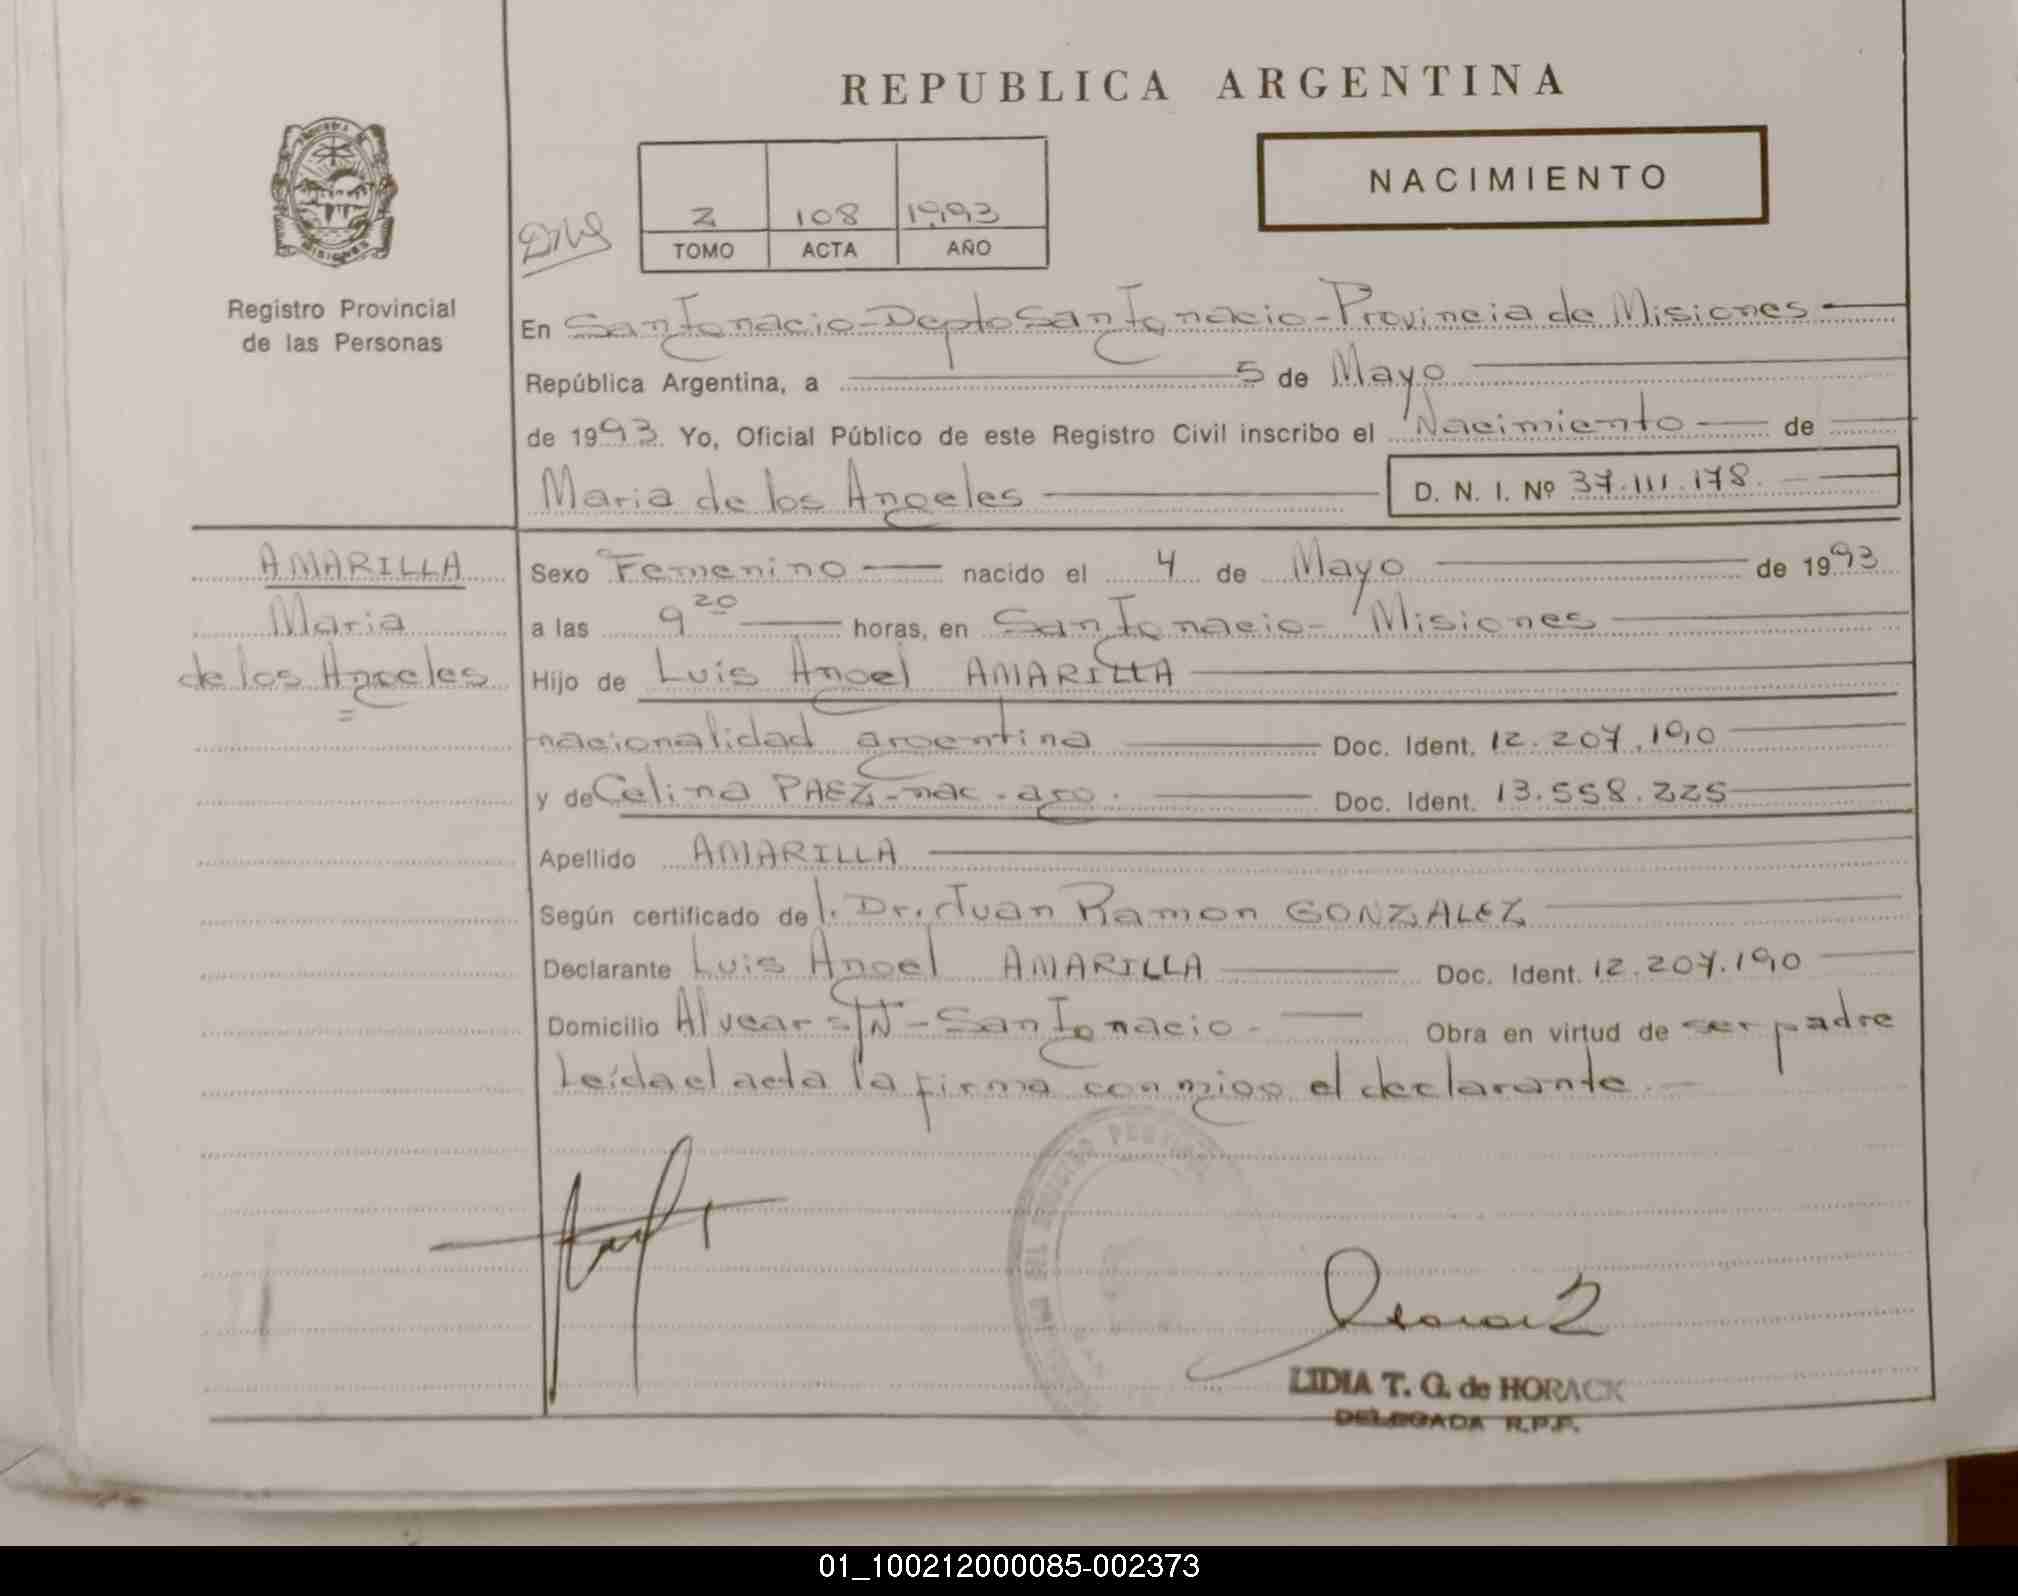 REPUBLICA ARGENTINA
NACIMIENTO
2 108 1993
TOMO ACTA AÑO
Registro Provincial
de las Personas
En San Ignacio - Depto San Ignacio - Provincia de Misiones
República Argentina, a 5 de Mayo
de 1993. Yo, Oficial Público de este Registro Civil inscribo el Nacimiento de
Maria de los Angeles D. N. I. Nº 37.111.178.
AMARILLA
Maria
de los Angeles
Sexo Femenino nacido el 4 de Mayo de 1993
a las 9 20 horas, en San Ignacio - Misiones
Hijo de Luis Angel AMARILLA
nacionalidad argentina Doc. Ident. 12.207.190
y de Celina PAEZ - nac. arg. Doc. Ident. 13.558.225
Apellido AMARILLA
Según certificado de l. Dr. Juan Ramon GONZALEZ
Declarante Luis Angel AMARILLA Doc. Ident. 12.207.190
Domicilio Alvear S/Nº - San Ignacio - Obra en virtud de ser padre
Leída el acta la firma conmigo el declarante. -
LIDIA T. G. de HORACK
DELEGADA R.P.P.
01_100212000085-002373